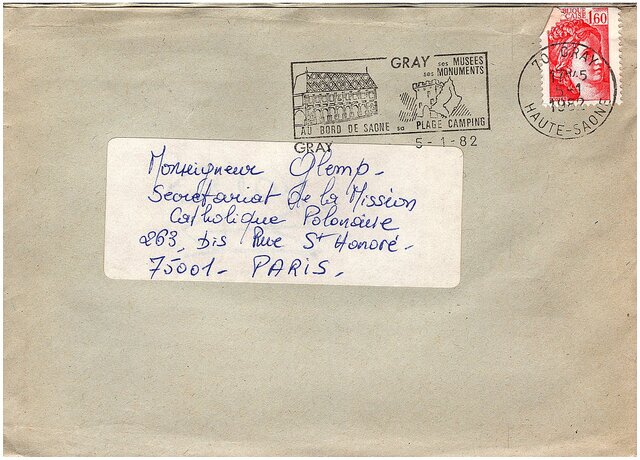 BLIQUE
CAISE 1,60
GRAY ses MUSEES
ses MONUMENTS
AU BORD DE SAONE sa PLAGE CAMPING
GRAY
5-1-82
70 GRAY
1982
HAUTE-SAONE
Monseigneur Glemp-
Secretariat de la Mission
Catholique Polonaise
263, bis Rue St Honoré-
75001- PARIS-